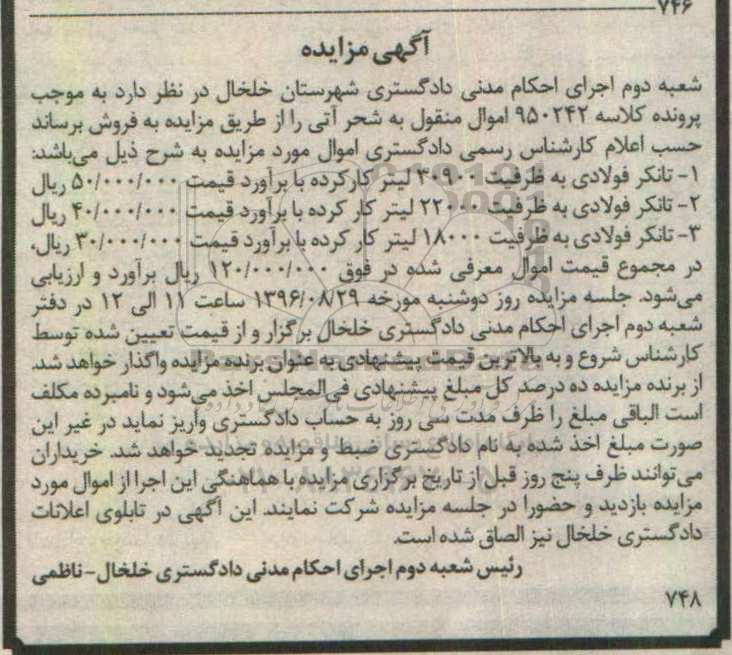 ۷۴۶
آگهی مزایده
شعبه دوم اجرای احکام مدنی دادگستری شهرستان خلخال در نظر دارد به موجب
پرونده کلاسه ۹۵۰۲۴۲ اموال منقول به شحر آتی را از طریق مزایده به فروش برساند
حسب اعلام کارشناس رسمی دادگستری اموال مورد مزایده به شرح ذیل می‌باشد:
۱- تانکر فولادی به ظرفیت ۳۰۹۰۰ لیتر کارکرده با برآورد قیمت ۵۰/۰۰۰/۰۰۰ ریال
۲- تانکر فولادی به ظرفیت ۲۲۰۰۰ لیتر کار کرده با برآورد قیمت ۴۰/۰۰۰/۰۰۰ ریال
۳- تانکر فولادی به ظرفیت ۱۸۰۰۰ لیتر کار کرده با برآورد قیمت ۳۰/۰۰۰/۰۰۰ ریال،
در مجموع قیمت اموال معرفی شده در فوق ۱۲۰/۰۰۰/۰۰۰ ریال برآورد و ارزیابی
می‌شود. جلسه مزایده روز دوشنبه مورخه ۱۳۹۶/۰۸/۲۹ ساعت ۱۱ الی ۱۲ در دفتر
شعبه دوم اجرای احکام مدنی دادگستری خلخال برگزار و از قیمت تعیین شده توسط
کارشناس شروع و به بالاترین قیمت پیشنهادی به عنوان برنده مزایده واگذار خواهد شد.
از برنده مزایده ده درصد کل مبلغ پیشنهادی فی‌المجلس اخذ می‌شود و نامبرده مکلف
است الباقی مبلغ را ظرف مدت سی روز به حساب دادگستری واریز نماید در غیر این
صورت مبلغ اخذ شده به نام دادگستری ضبط و مزایده تجدید خواهد شد. خریداران
می‌توانند ظرف پنج روز قبل از تاریخ برگزاری مزایده با هماهنگی این اجرا از اموال مورد
مزایده بازدید و حضورا در جلسه مزایده شرکت نمایند. این آگهی در تابلوی اعلانات
دادگستری خلخال نیز الصاق شده است.
رئیس شعبه دوم اجرای احکام مدنی دادگستری خلخال- ناظمی
۷۴۸